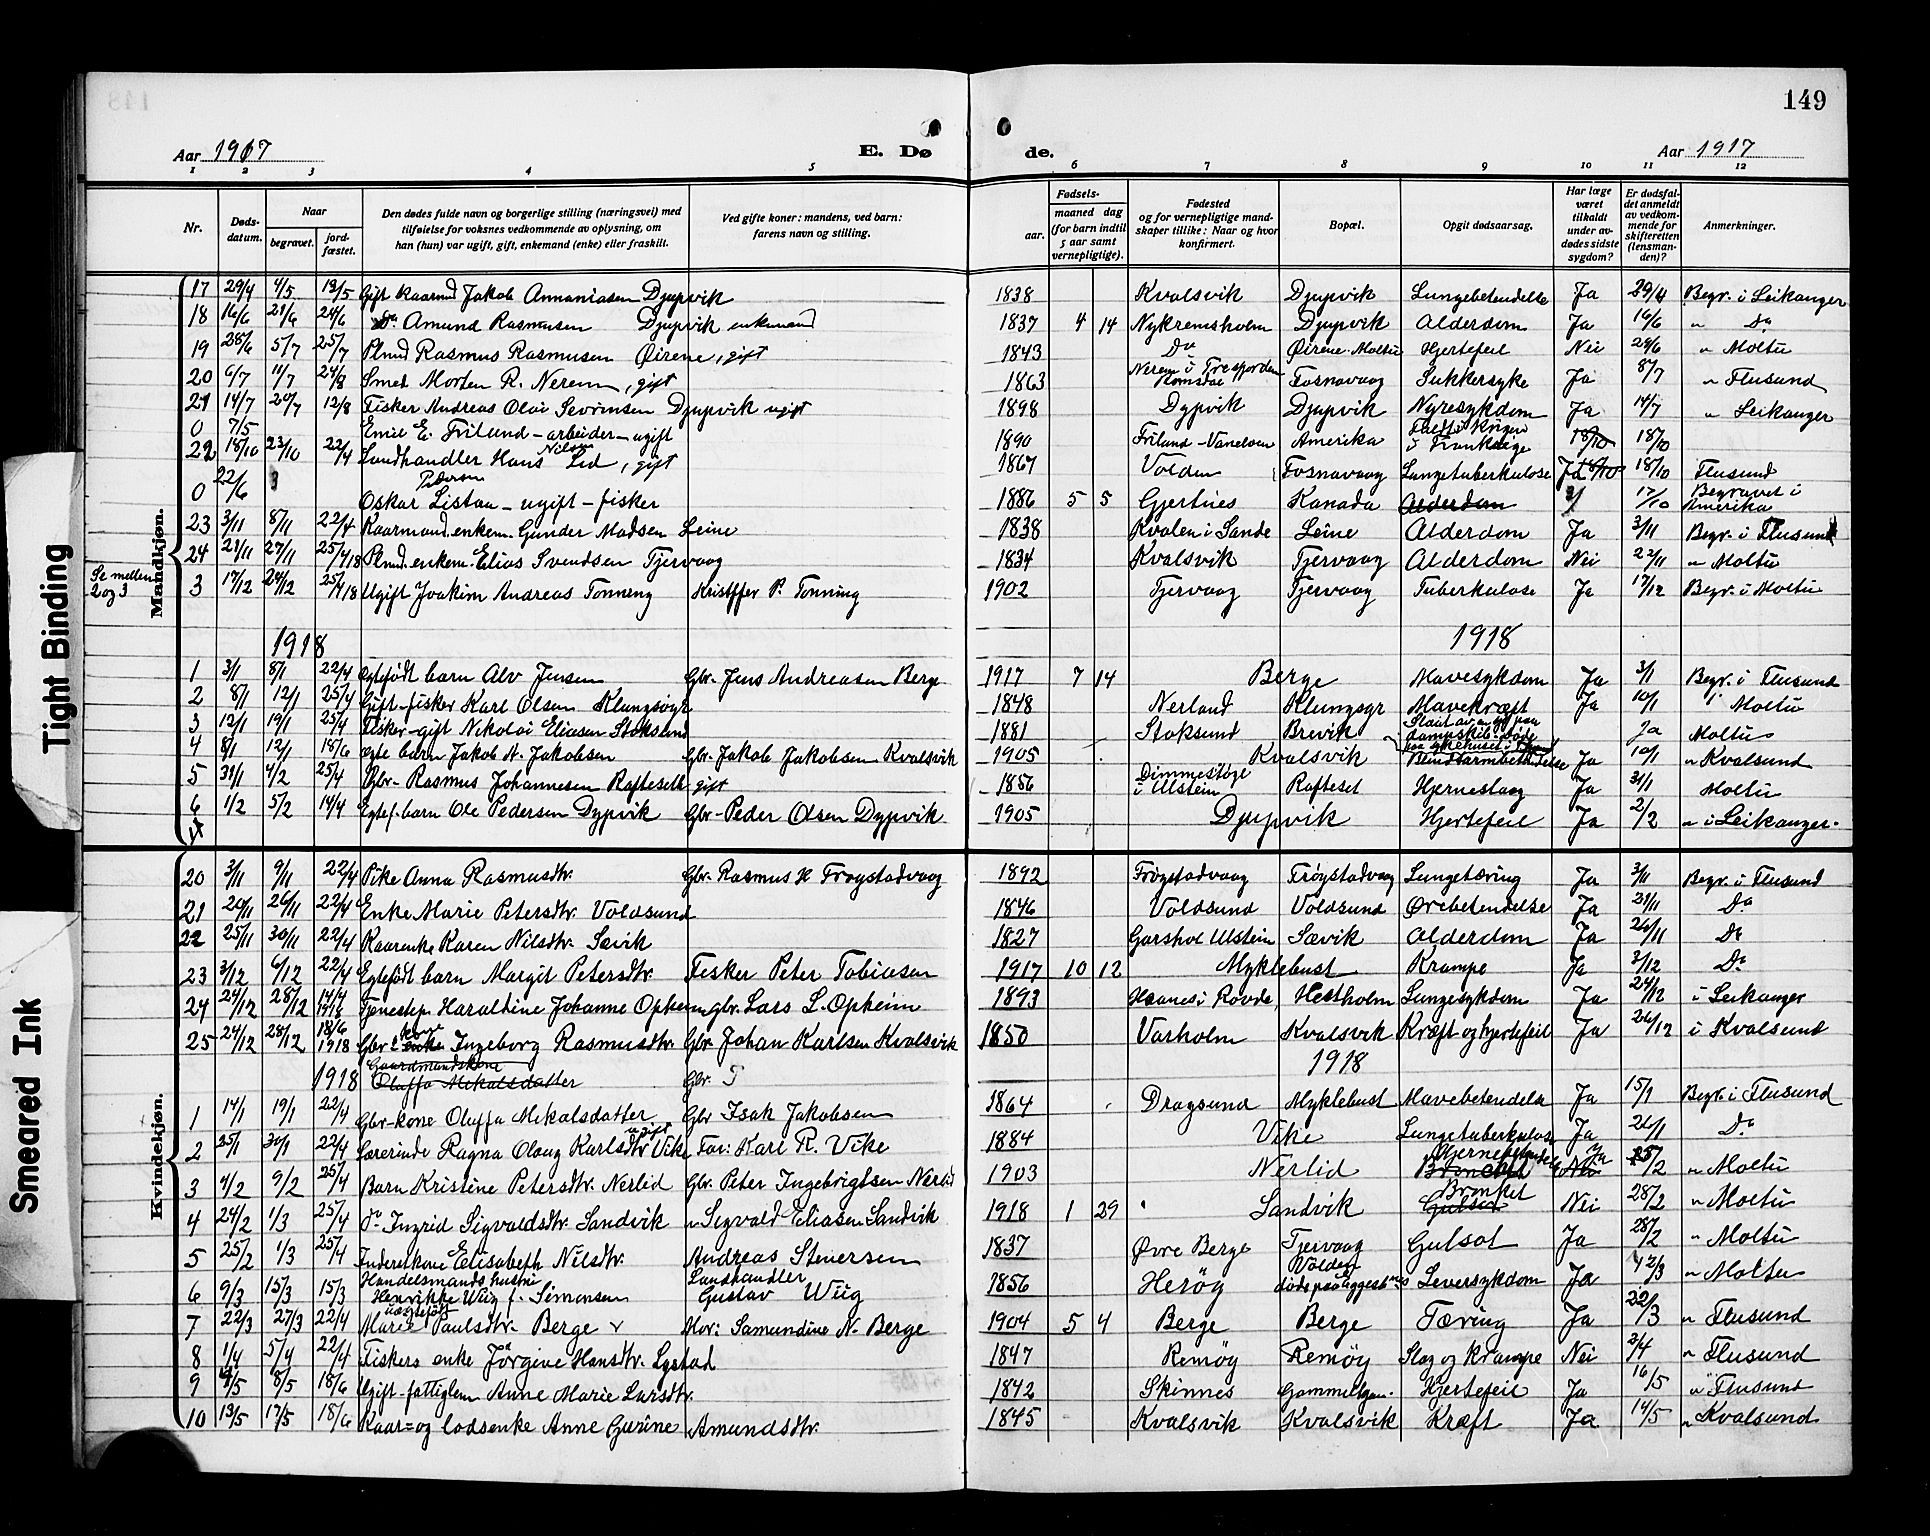 149
Aar 1917
E. Dø
de.
Aar 1917
1 2 3 4 5 6 7 8 9 10 11 12
Nr.
Døds-
datum.
Naar
begravet.
jord-
fæstet.
Den dødes fulde navn og borgerlige stilling (næringsvei) med
tilføielse for voksnes vedkommende av oplysning, om
han (hun) var ugift, gift, enkemand (enke) eller fraskilt.
Ved gifte koner: mandens, ved barn:
farens navn og stilling.
Fødsels-
aar.
maaned dag
(for barn indtil
5 aar samt
vernepligtige).
Fødested
og for vernepligtige mand-
skaper tillike: Naar og hvor
konfirmert.
Bopæl.
Opgit dødsaarsag.
Har læge
været
tilkaldt
under av-
dødes sidste
sygdom?
Er dødsfal-
det anmeldt
av vedkom-
mende for
skifteretten
(lensman-
den)?
Anmerkninger.
Mandkjøn.
17 29/4 4/5 13/5 Gift kaarmd Jakob Annaniasen Djupvik 1838 Kvalsvik Djupvik Lungebetendelse Ja 29/4 Begr. i Leikanger
18 16/6 21/6 24/6 Do Amund Rasmusen Djupvik enkemand 1837 4 14 Nykremsholm Djupvik Alderdom Ja 16/6 " Do
19 28/6 5/7 25/7 Plmd Rasmus Rasmusen Øirene, gift 1843 Do Øirene-Moltu Hjertefeil Nei 28/6 " Moltu
20 6/7 11/7 24/8 Smed Morten R. Nerem, gift 1863 Nerem i Tresfjorden Romsdal Fosnavaag Sukkersyke Ja 8/7 " Flusund
21 14/7 20/7 12/8 Fisker Andreas Olai Severinsen Djupvik ugift 1898 Dypvik Djupvik Nyresykdom Ja 14/7 " Leikanger
0 7/5 Emil E. Friland - arbeider - ugift 1890 Friland - Vanelven Amerika Faldt i krigen i Frankrige 18/10 18/10
22 18/10 23/10 22/4 Landhandler Hans Nilsen Lid, gift 1867 Volden Fosnavaag Lungetuberkulose Ja 18/10 18/10 Flusund
0 22/6 Oskar Pedersen Listau - ugift - fisker 1886 5 5 Gjertnes Kanada Alderdom 17/10 Begravet i Amerika
23 3/11 8/11 22/4 Kaarmand, enkem. Gunder Madsen Leine 1838 Kvalen i Sande Leine Alderdom Ja 3/11 Begr. i Flusund
24 21/11 27/11 25/4 18 Plmd. enkem. Elias Svendsen Tjervaag 1834 Kvalsvik Tjervaag Alderdom Nei 22/11 " Moltu
Se mellem 2 og 3
3 17/12 24/12 25/4 18 Ugift Joakim Andreas Tonning Kristffer P. Tonning 1902 Tjervaag Tjervaag Tuberkulose Ja 17/12 Begr. i Moltu
1918 1918
1 3/1 8/1 22/4 Egtefødt barn Alv Jensen Gbr. Jens Andreasen Berge 1917 7 14 Berge Mavesykdom Ja 3/1 Begr. i Flusund
2 8/1 12/1 25/4 Gift-fisker Karl Olsen Klungsøyr 1848 Nerland Klungsøyr Mavekræft Ja 10/1 " Moltu
3 12/1 19/1 25/4 Fisker-gift Nikolai Eliasen Stoksund 1881 Stoksund Brevik dampskib døde paa sykehuset i Ja Moltu
4 8/1 12/1 18/6 ægte barn Jakob A. Jakobsen Gbr. Jakob Jakobsen Kvalsvik 1905 Kvalsvik Blindtarmbetendelse Ja 10/1 " Kvalsund
5 31/1 4/2 25/4 Gbr- Rasmus Johannesen Rafteseth gift 1856 Dimmestøge i Ulstein Rafteset Hjerneslag Ja 31/1 Moltu
6 1/2 5/2 14/4 Egtef. barn Ole Pedersen Dypvik Gbr- Peder Olsen Dypvik 1905 Djupvik Hjertefeil Ja 2/2 " i Leikanger.
Kvindekjøn.
20 3/11 9/11 22/4 Pike Anna Rasmusdtr. Gbr. Rasmus H Frøystadvaag 1892 Frøystadvaag Frøystadvaag Lungetæring Ja 3/11 Begr. i Flusund
21 20/11 26/11 22/4 Enke Marie Petersdtr. Voldsund 1846 Voldsund Voldsund Ørebetendelse Ja 21/11 Do
22 25/11 30/11 22/4 Kaarenke Karen Nilsdtr. Sævik 1827 Garshol Ulstein Sævik Alderdom Ja 26/11 Do
23 3/12 6/12 22/4 Egtefødt barn Margit Petersdtr. Fisker Peter Tobiasen 1917 10 12 Myklebust Krampe Ja 3/12 Do
24 24/12 28/12 14/4 1918 Tjenestep. Haraldine Johanne Opheim gbr. Lars L. Opheim 1893 Haanes i Rovde Hestholm Lungesykdom Ja 24/12 i Leikanger
25 24/12 28/12 18/6 1918 Gbr.s enke kone Ingeborg Rasmusdtr. Gbr. Johan Karlsen Kvalsvik 1850 Varholm Kvalsvik Kræft og hjertefeil Ja 26/12 i Kvalsund
1918 Gaardmandskone Oluffa Mikalsdatter Gbr. 1918
1 14/1 19/1 22/4 Gbr-kone Oluffa Mikalsdatter Gbr Isak Jakobsen 1864 Dragsund Myklebust Mavebetendelse Ja 15/1 Begr. i Flusund
2 25/1 30/1 22/4 Lærerinde Ragna Olaug Karlsdtr. ugift Vike Far: Karl R. Vike 1884 Vike Lungetuberkulose Ja 26/1 Do
3 4/2 9/2 25/4 Barn Kristine Petersdtr. Nerlid Gbr. Peter Ingebrigtsen Nerlid 1903 Nerlid Hjernebetendelse Bronchit Nei Ja /2 " Moltu
4 24/2 1/3 25/4 do Ingrid Sigvaldsdtr. Sandvik " Sigvald Eliasen Sandvik 1918 1 29 Sandvik Bronkit Gulsot Nei 28/2 " Moltu
5 25/2 1/3 25/4 Inderstkone Elisabeth Nilsdtr. Andreas Steuersen 1837 Øvre Berge Tjervaag Gulsot Ja 28/2 " Moltu
6 9/3 15/3 15/3 Handelsmands hustru Henrikke Wiig f. Simonsen Landhandler Gustav Wiig 1856 Herøy Volden døde paa Eggesbønes Leversykdom Ja 12/3 " Moltu
7 22/3 27/3 22/4 uægtefødt Marie Paulsdtr. Berge Mor: Samundine N. Berge 1904 5 4 Berge Berge Tæring Ja 22/3 " Flusund
8 1/4 5/4 22/4 Fiskers enke Jørgine Hansdtr. Lystad 1847 Remøy Remøy Slag og krampe Nei 3/4 " Flusund
9 /5 8/5 18/6 Ugift-fattiglem Anne Marie Larsdtr. 1842 Skinnes Hjertefeil Ja 16/5 " Flusund
10 13/5 17/5 18/6 Kaar= og lodsenke Anne Gurine Amundsdtr. 1845 Kvalsvik Kvalsvik Kræft Ja 14/5 " Kvalsund
Tight Binding
Smeared Ink